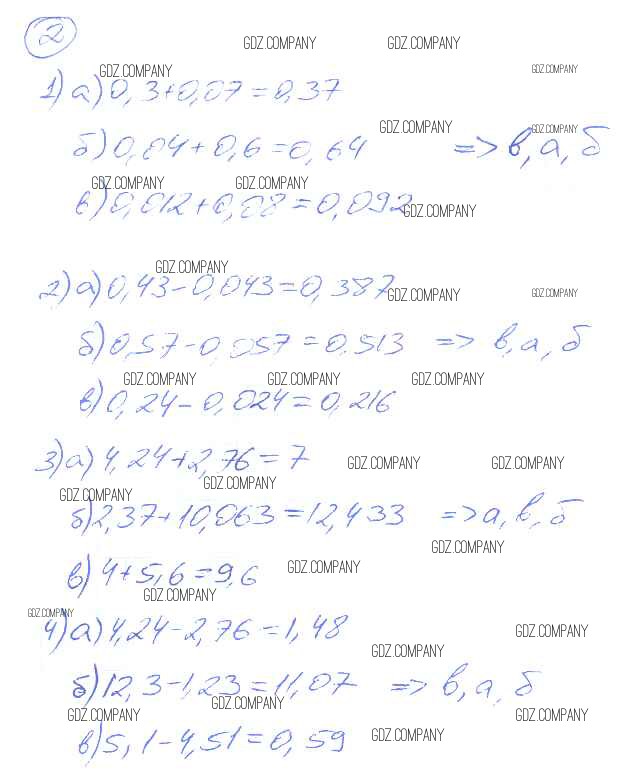 2
GDZ.COMPANY GDZ.COMPANY
GDZ.COMPANY GDZ.COMPANY
1) а) 0,3+0,07=0,37
GDZ.COMPANY GDZ.COMPANY
б) 0,04+0,6=0,64 => в, а, б
GDZ.COMPANY GDZ.COMPANY
в) 0,012+0,08=0,092
GDZ.COMPANY
GDZ.COMPANY
2) а) 0,43-0,043=0,387
GDZ.COMPANY GDZ.COMPANY
б) 0,57-0,057=0,513 => в, а, б
GDZ.COMPANY GDZ.COMPANY GDZ.COMPANY
в) 0,24-0,024=0,216
3) а) 4,24+2,76=7
GDZ.COMPANY GDZ.COMPANY
GDZ.COMPANY GDZ.COMPANY
б) 2,37+10,063=12,433 => а, в, б
GDZ.COMPANY
в) 4+5,6=9,6
GDZ.COMPANY
GDZ.COMPANY
GDZ.COMPANY
4) а) 4,24-2,76=1,48
GDZ.COMPANY
GDZ.COMPANY
б) 12,3-1,23=11,07 => в, а, б
GDZ.COMPANY
GDZ.COMPANY GDZ.COMPANY
в) 5,1-4,51=0,59
GDZ.COMPANY